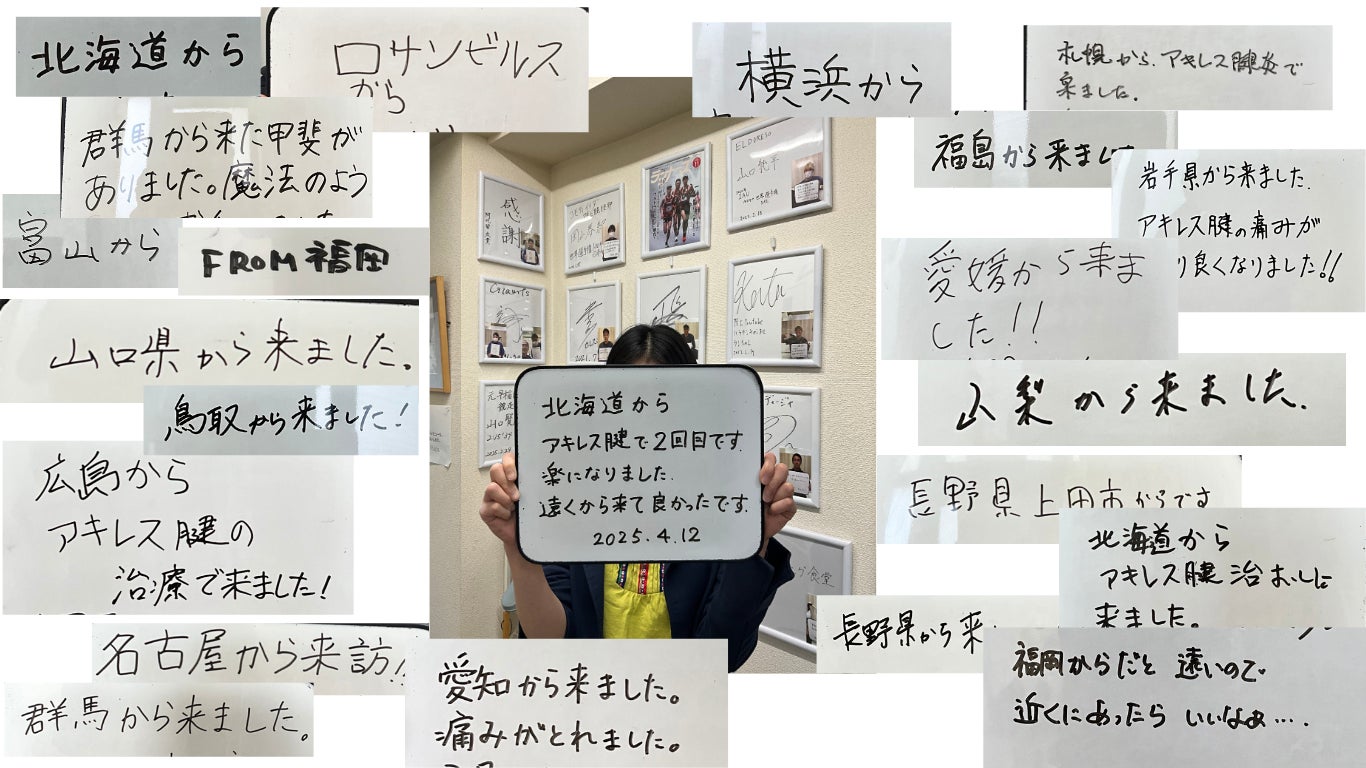 北海道から
ロサンゼルス
から
横浜から
札幌から、アキレス腱炎で
来ました。
群馬から来た甲斐が
ありました。魔法のよう
福島から来ました
岩手県から来ました。
アキレス腱の痛みが
り良くなりました!!
富山から
FROM 福岡
愛媛から来ま
した!!
山口県から来ました。
鳥取から来ました!
山梨から来ました。
広島から
アキレス腱の
治療で来ました!
長野県上田市からです
北海道から
アキレス腱治おしに
来ました。
長野県から来
名古屋から来訪!
群馬から来ました。
愛知から来ました。
痛みがとれました。
福岡からだと 遠いので
近くにあったら いいなぁ….
感謝
ELDORESO
北海道から
アキレス腱で2回目です.
楽になりました.
遠くから来て良かったです.
2025.4.12